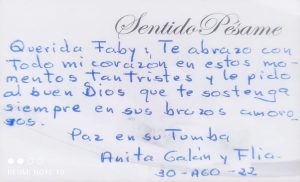 Sentido Pésame
Querida Faby: Te abrazo con
todo mi corazón en estos mo-
mentos tan tristes y le pido
al buen Dios que te sostenga
siempre en sus brazos amoro-
sos.
Paz en su Tumba
Anita Galán y Flia.
30-AGO-22
REDMI NOTE 10